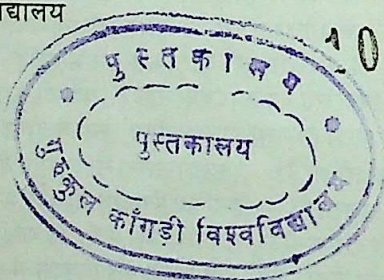 द्यालय
10
पुस्तकालय
पुस्तकालय
गुरुकुल काँगड़ी विश्वविद्यालय